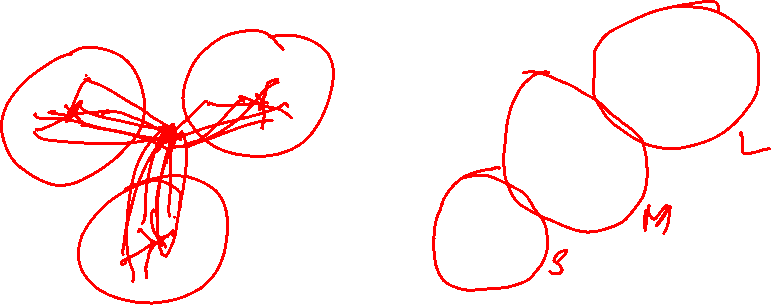 L
M
S